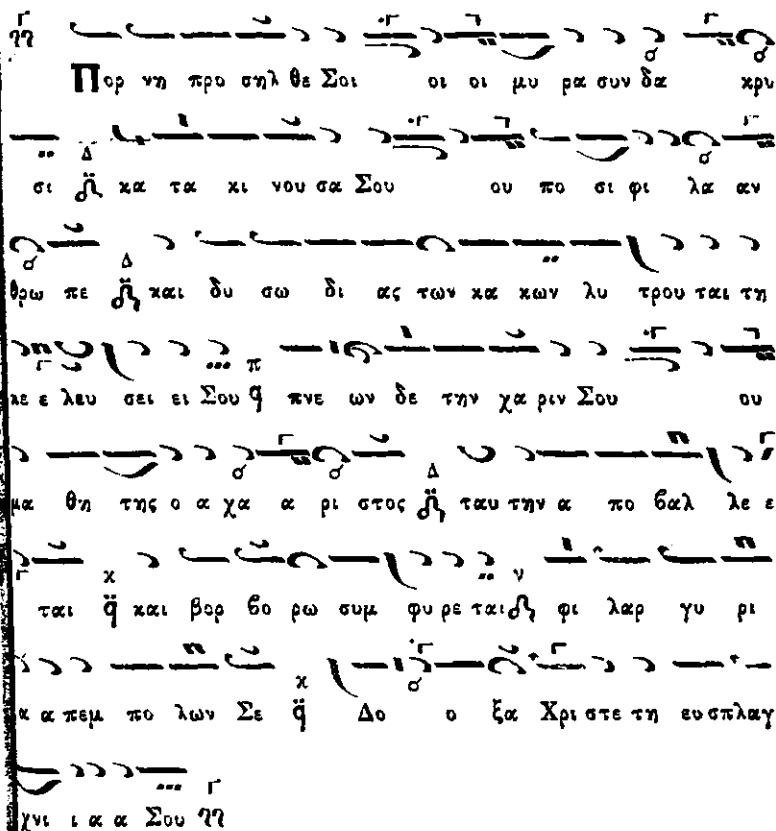 Πορ νη προ σηλ θε Σοι οι οι μυ ρα συν δα κρυ
σι κα τα κι νου σα Σου ου πο σι φι λα αν
θρω πε και δυ σω δι ας των κα κων λυ τρου ται τη
κε ε λευ σει ει Σου πνε ων δε την χα ριν Σου ου
μα θη της ο α χα α ρι στος ταυ την α πο βαλ λε ε
ται και βορ βο ρω συμ φυ ρε ται φι λαρ γυ ρι
α πεμ πο λων Σε Δο ο ξα Χρι στε τη ευ σπλαγ
χνι ι α α Σου